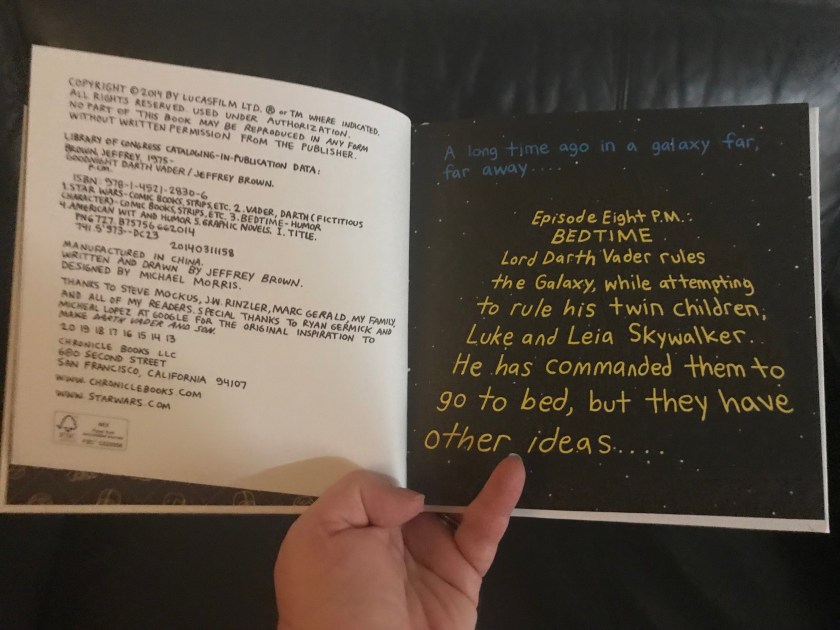 COPYRIGHT © 2014 BY LUCASFILM LTD. ® or TM WHERE INDICATED.
ALL RIGHTS RESERVED. USED UNDER AUTHORIZATION.
NO PART OF THIS BOOK MAY BE REPRODUCED IN ANY FORM
WITHOUT WRITTEN PERMISSION FROM THE PUBLISHER.
LIBRARY OF CONGRESS CATALOGING-IN-PUBLICATION DATA:
BROWN, JEFFREY, 1975-
GOODNIGHT DARTH VADER / JEFFREY BROWN.
P. CM.
ISBN: 978-1-4521-2830-6
1. STAR WARS-COMIC BOOKS, STRIPS, ETC. 2. VADER, DARTH (FICTITIOUS
CHARACTER)-COMIC BOOKS, STRIPS, ETC. 3. BEDTIME-HUMOR
4. AMERICAN WIT AND HUMOR 5. GRAPHIC NOVELS. I. TITLE.
PN6727.B75756G62014
741.5'973--DC23
20140311158
MANUFACTURED IN CHINA.
WRITTEN AND DRAWN BY JEFFREY BROWN.
DESIGNED BY MICHAEL MORRIS.
THANKS TO STEVE MOCKUS, J.W. RINZLER, MARC GERALD, MY FAMILY,
AND ALL OF MY READERS. SPECIAL THANKS TO RYAN GERMICK AND
MICHEAL LOPEZ AT GOOGLE FOR THE ORIGINAL INSPIRATION TO
MAKE DARTH VADER AND SON.
20 19 18 17 16 15 14 13
CHRONICLE BOOKS LLC
680 SECOND STREET
SAN FRANCISCO, CALIFORNIA 94107
WWW.CHRONICLEBOOKS.COM
WWW.STARWARS.COM
FSC
MIX
A long time ago in a galaxy far,
far away....
Episode Eight P.M.:
BEDTIME
Lord Darth Vader rules
the Galaxy, while attempting
to rule his twin children,
Luke and Leia Skywalker.
He has commanded them to
go to bed, but they have
other ideas....